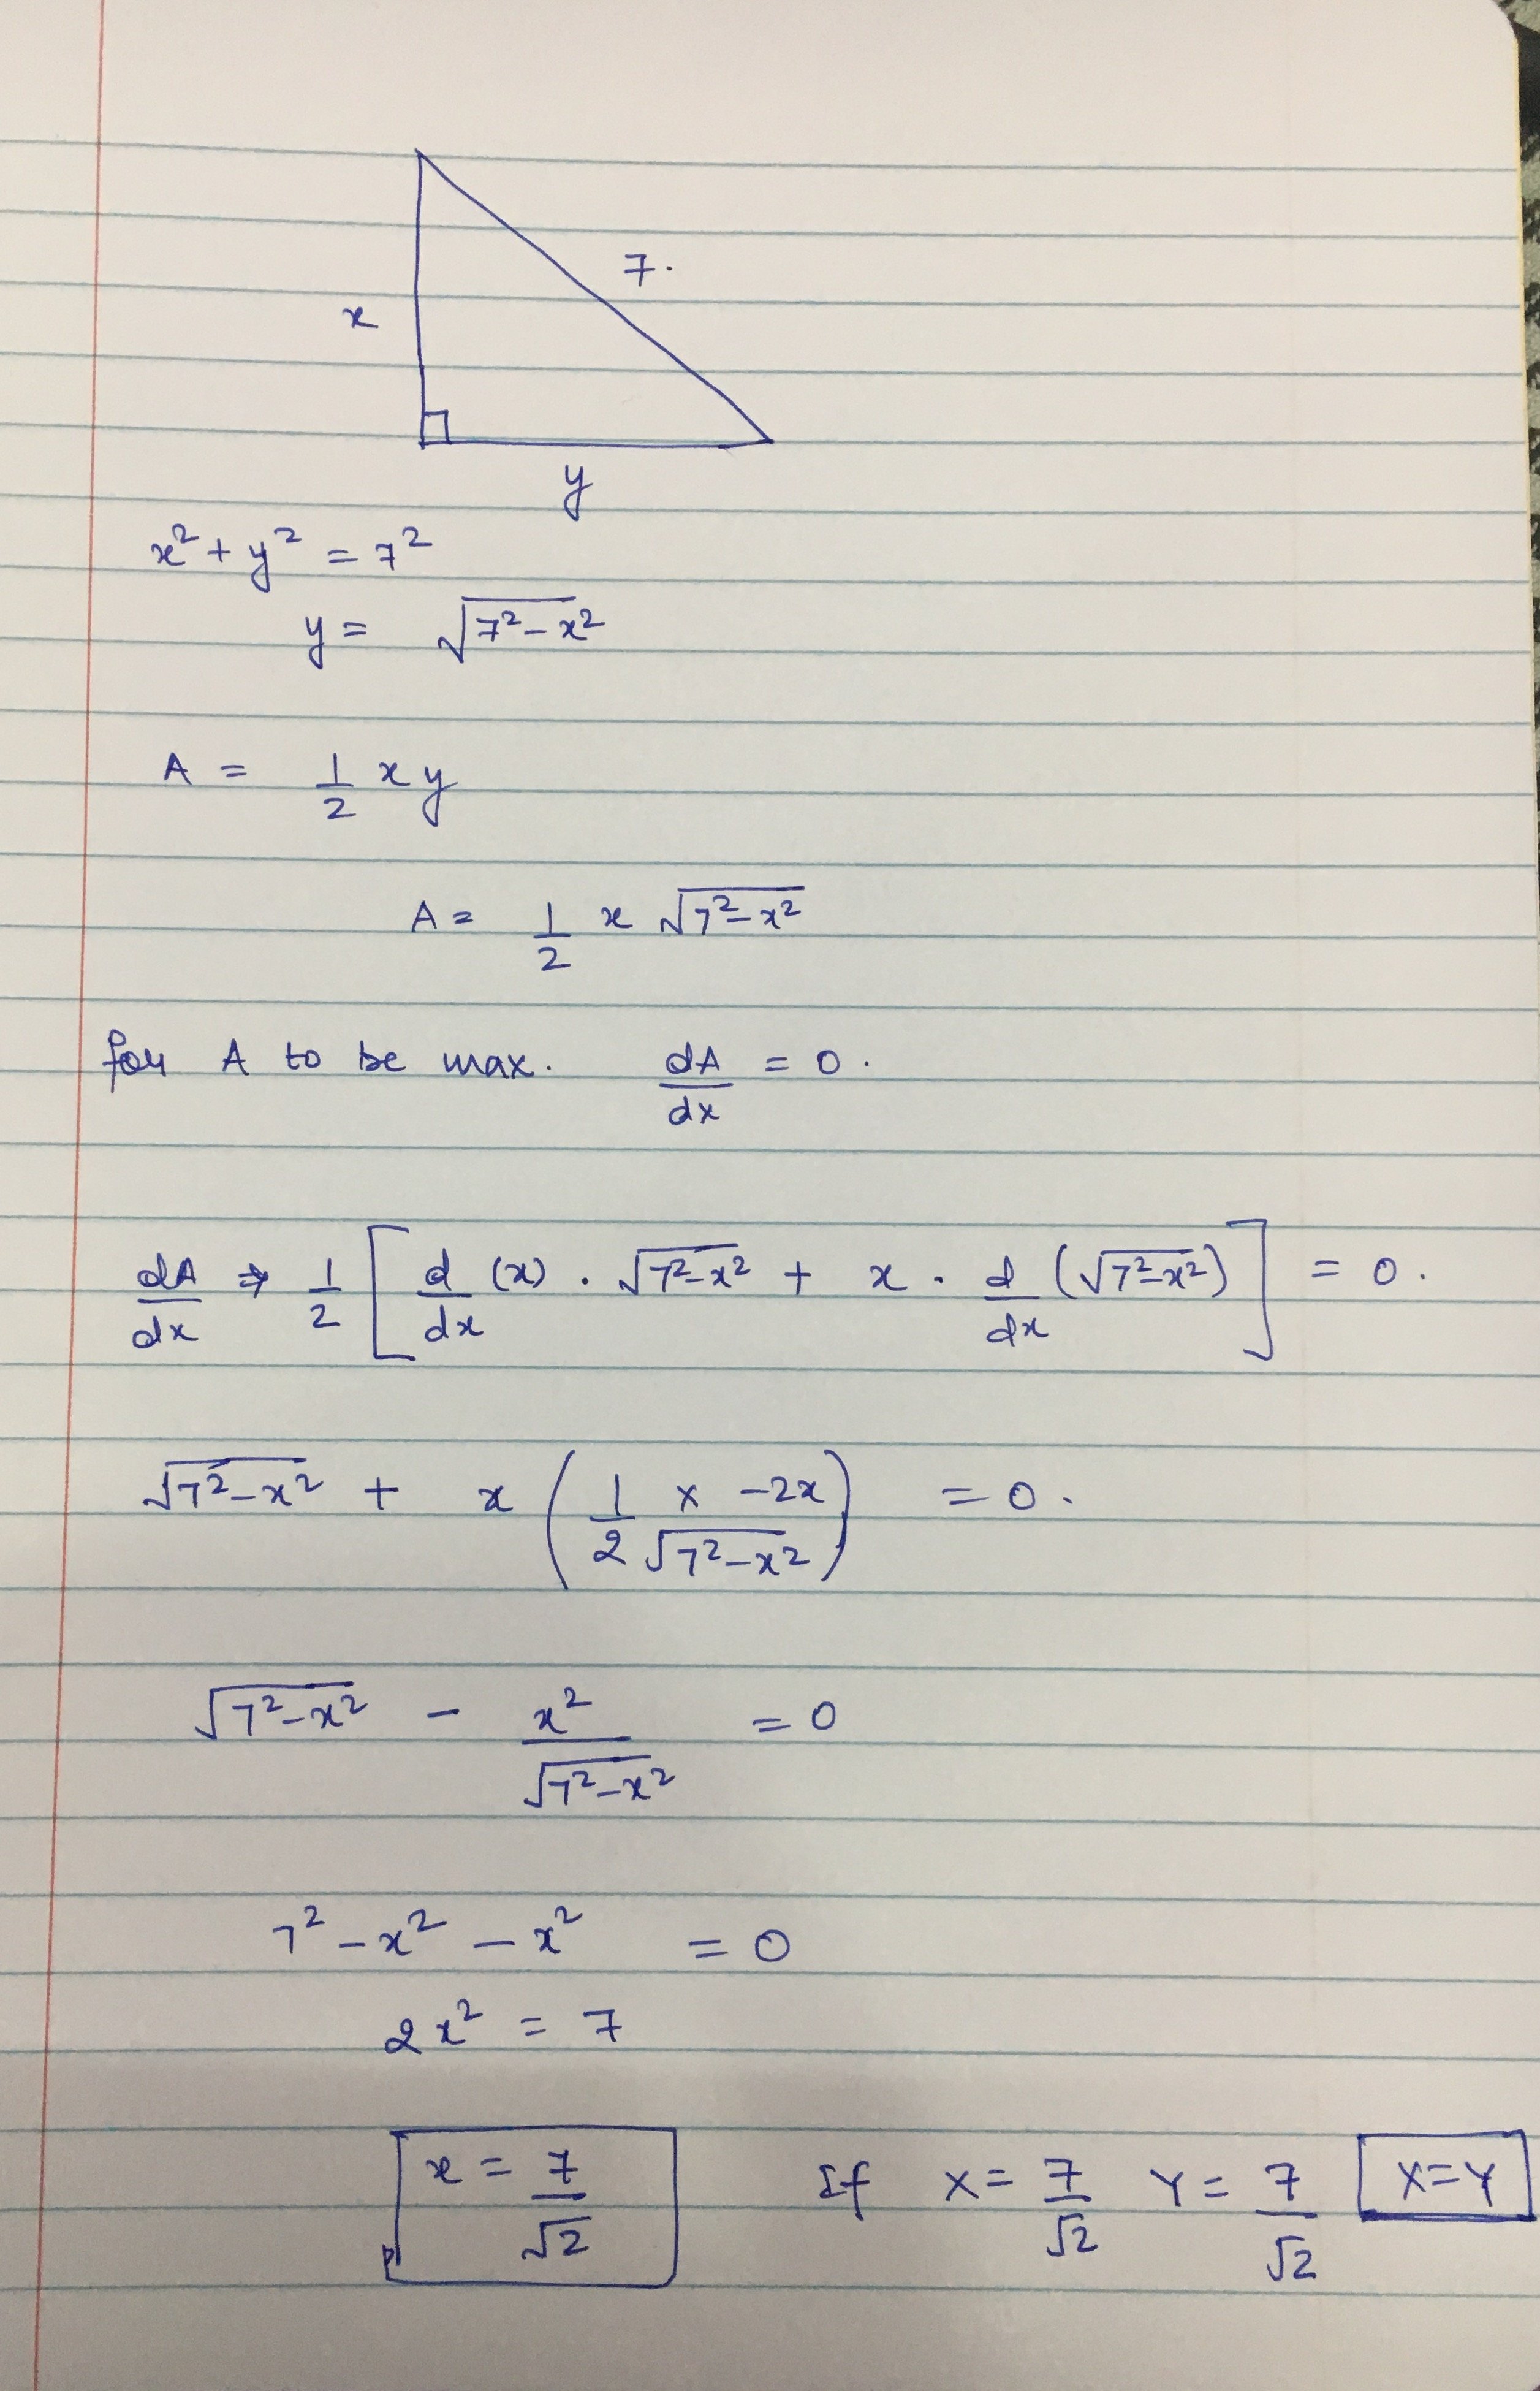 7.
x
y
x² + y² = 7²
y = √(7² – x²)
A = 1/2 x y
A = 1/2 x √(7² – x²)
for A to be max. dA/dx = 0.
dA/dx ⇒ 1/2 [ d/dx (x) . √(7² – x²) + x . d/dx (√(7² – x²)) ] = 0.
√(7² – x²) + x ( 1/(2√(7² – x²)) × –2x ) = 0.
√(7² – x²) – x²/√(7² – x²) = 0
7² – x² – x² = 0
2x² = 7
x = 7/√2 If X = 7/√2 Y = 7/√2 X=Y